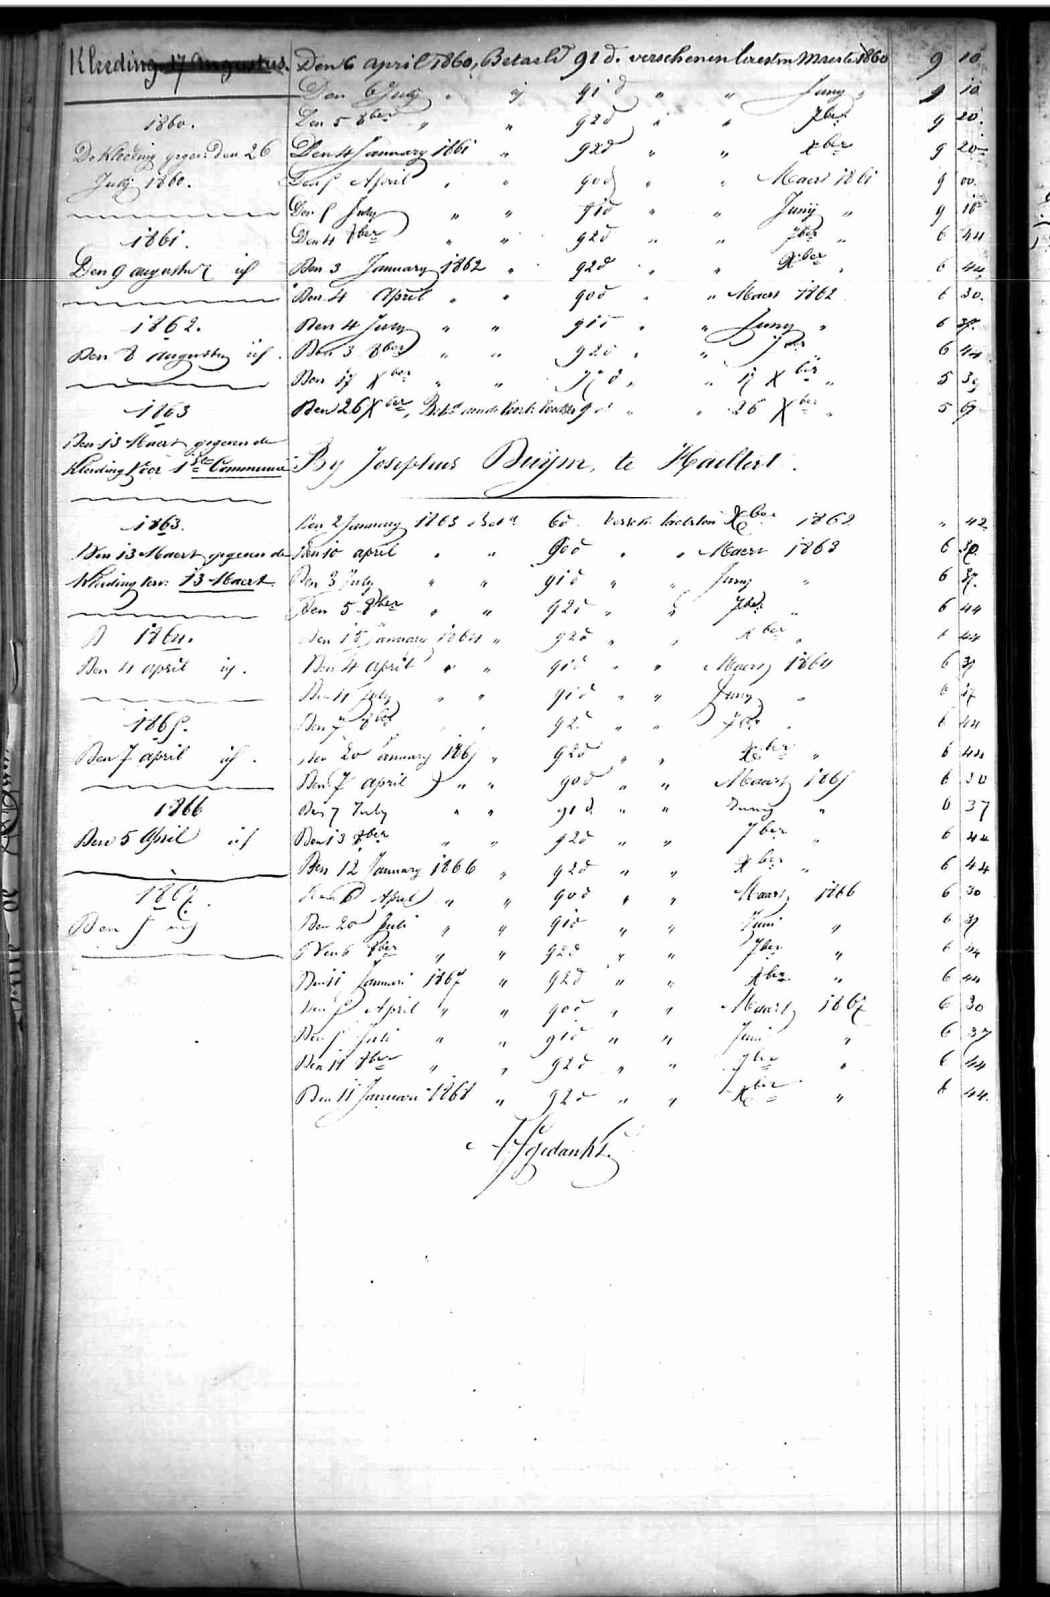 Kleeding 17 Augustus. Den 6 april 1860, Betaeld 91 d. verschenen leesten Maerte 1860 9 10
Den 6 July " " 91 d " " Juny " 9 10
1860. Den 5 8ber " " 92 d " " 7ber 9 20.
De Kleeding gegeven den 26 Den 4 January 1861 " 92 d " " Xber 9 20
July 1860. April " " 90 d " " Maert 1861 9 00.
July " " 91 d " " Junij " 9 10
1861. Den 4 8ber " " 92 d " " 7ber " 6 44
Den 9 augustus id Den 3 January 1862 " 92 d " " Xber " 6 44.
Den 4 April " " 90 d " " Maert 1862 6 30.
1862. Den 4 July " " 91 d " " Juny " 6 37.
Den 8 augusty id. Den 3 8ber " " 92 d " " 7ber " 6 44
Den 17 Xber " " " " 17 Xber " 5 39
1863 Den 26 Xber, 9 d " " 26 Xber " 5 67
Den 13 Maert gegeven de
Kleeding Voor 1ste Communie By Josephus Buijm, te Haeltert.
1863. Den 2 January 1863 Bet. 6 d. Xber 1862 " 42
Den 13 Maert gegeven de Den 10 april " " 90 d " " Maert 1863 6 30.
Kleeding 13 Maert Den 3 July " " 91 d " " Juny " 6 37.
Den 5 8ber " " 92 d " " 7ber " 6 44
1864. Den 15 January 1864 " 92 d " " Xber " 6 44
Den 4 april id. Den 4 april " " 91 d " " Maert 1864 6 37
Den 4 July " " 91 d " " Juny " 6 37
1865. Den 7 8ber " " 92 d " " 7ber " 6 44
Den 7 april id. Den 20 January 1865 " 92 d " " Xber " 6 44
Den 7 april " " 90 d " " Maert 1865 6 30
1866 Den 7 July " " 91 d. " " Juny " 6 37
Den 5 April id Den 13 8ber " " 92 d " " 7ber " 6 44
Den 12 January 1866 " 92 d " " Xber " 6 44
1867. Den 6 April " " 90 d " " Maart 1866 6 30
Den 5 Den 20 Juli " " 91 d " " Juni " 6 37
Den 6 8ber " " 92 d " " 7ber " 6 44
Den 11 Januari 1867 " 92 d " " Xber " 6 44
Den 5 April " " 90 d " " Maart 1867 6 30
Den 5 Juli " " 91 d " " Juni " 6 37
Den 11 8ber " " 92 d " " 7ber " 6 44
Den 11 Januari 1868 " 92 d " " Xber " 6 44.
Afgedankt.